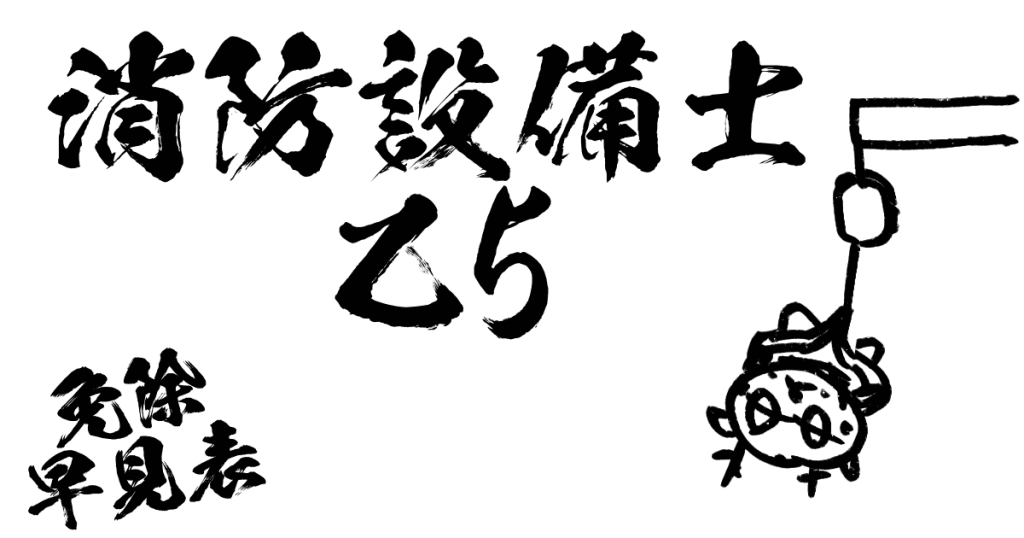 消防設備士
乙5
免除
早見表